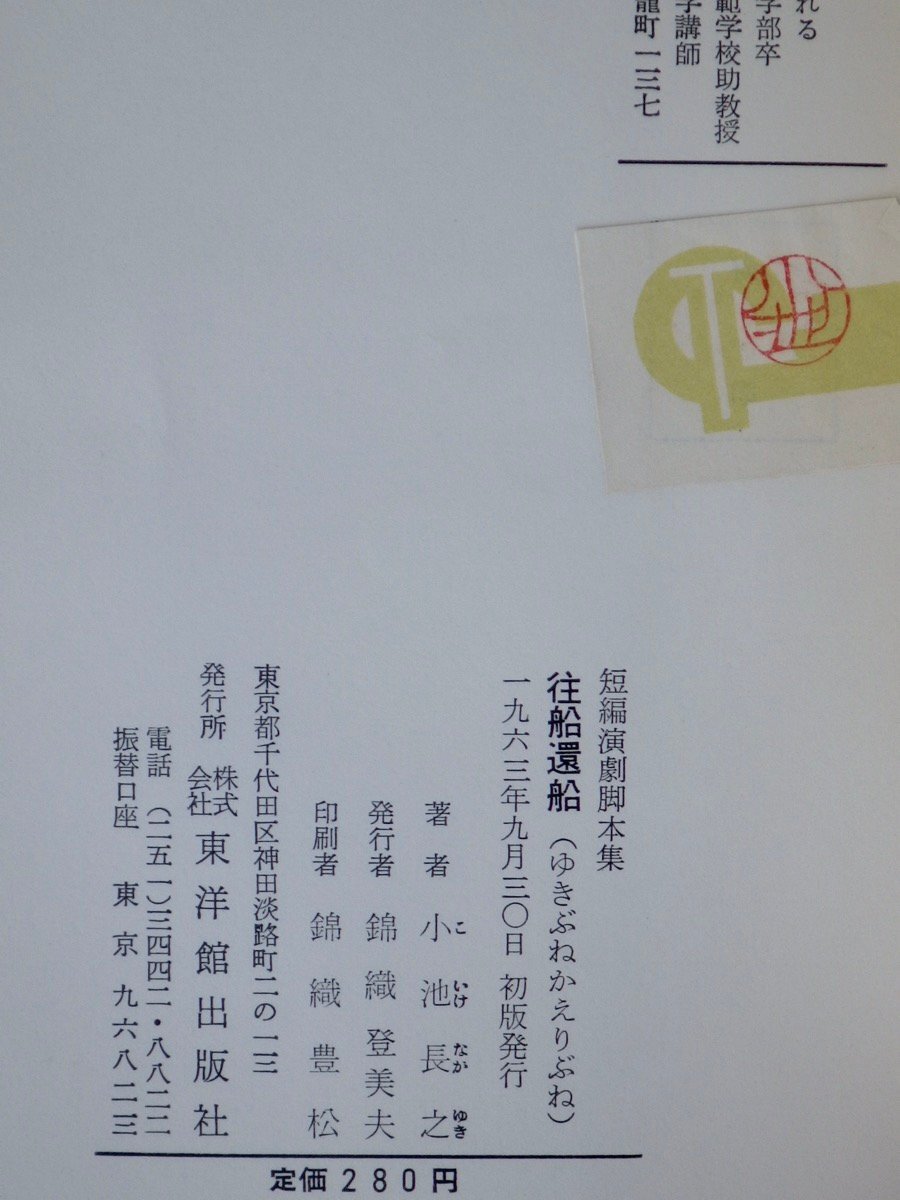 れる
学部卒
範学校助教授
学講師
龍町一三七
小池
短編演劇脚本集
往船還船（ゆきぶねかえりぶね）
一九六三年九月三〇日 初版発行
著者 小池長之
こ いけ なが ゆき
発行者 錦織登美夫
印刷者 錦織豊松
東京都千代田区神田淡路町二の一三
発行所 株式会社 東洋館出版社
電話（二五一）三四四二・八八二二
振替口座 東京 九六八二三
定価280円